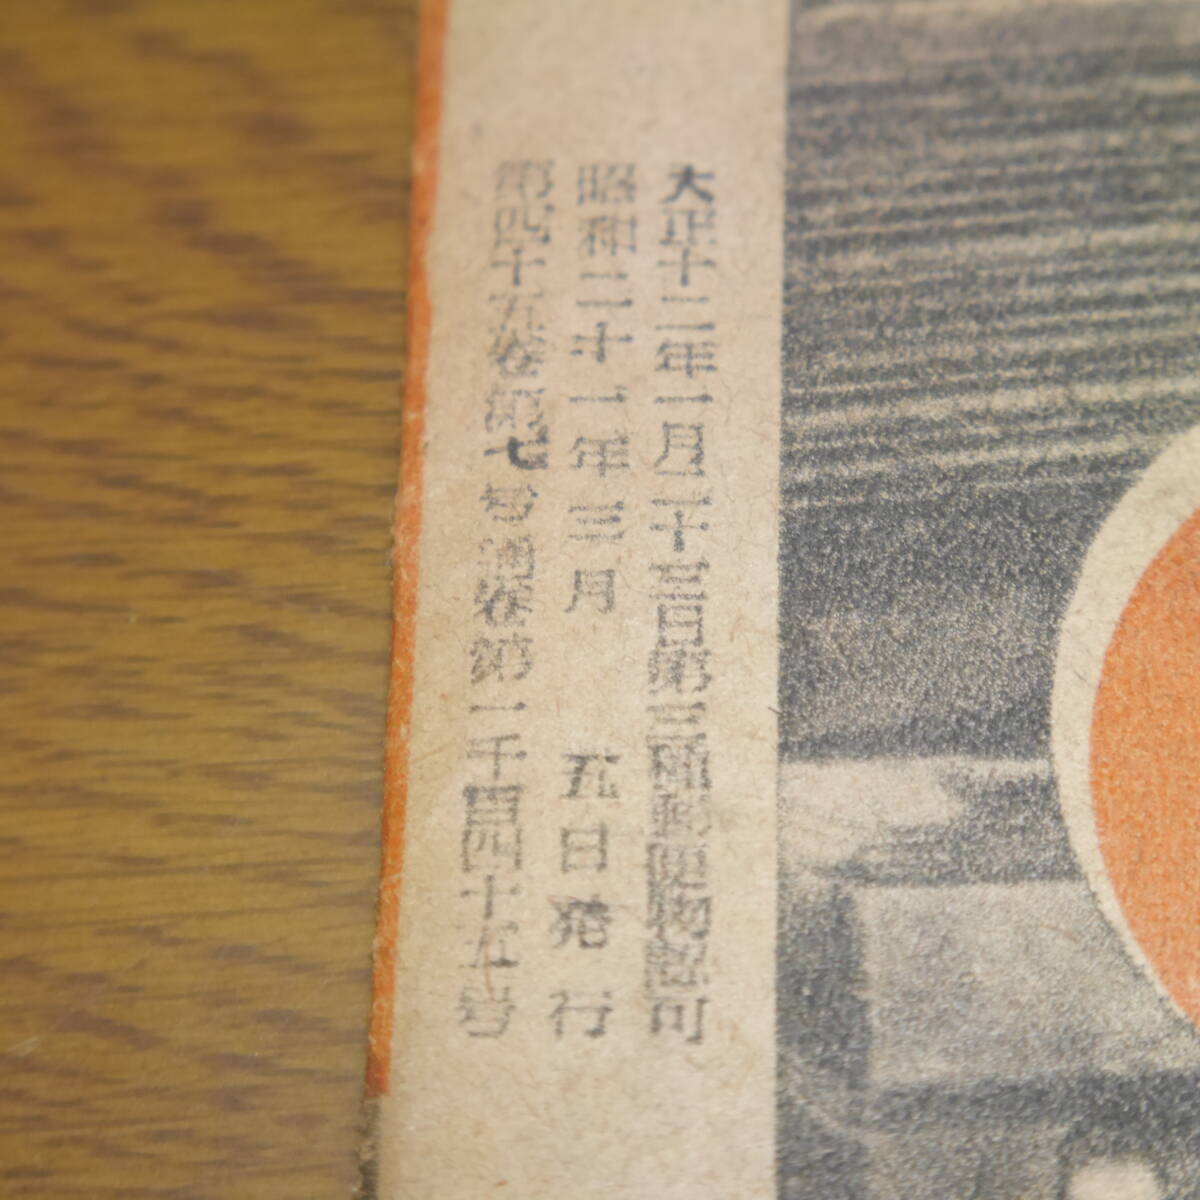 大正十二年一月二十三日第三種郵便物認可
昭和二十一年三月 五日発行
第四十五巻第七号通巻第一千百四十五号